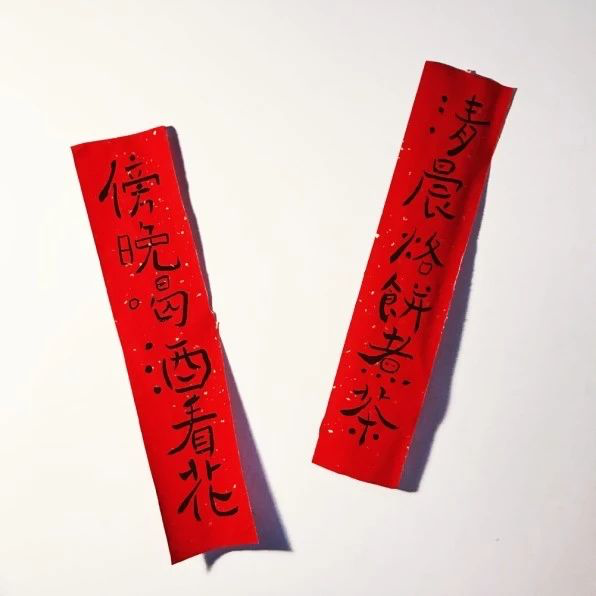 清晨烙餅煮茶
傍晚喝酒看花